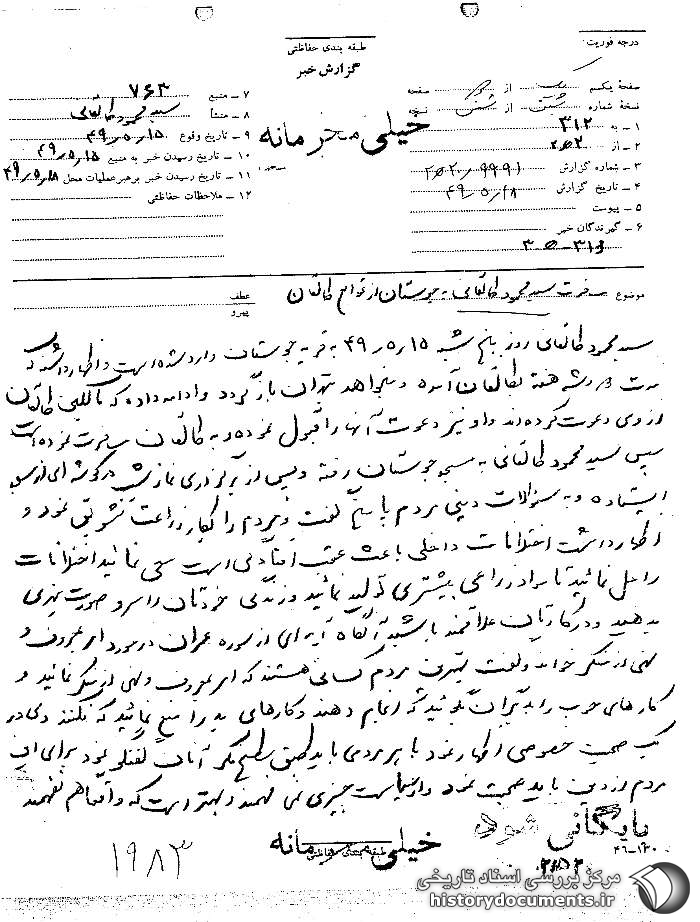 درجه فوریت
طبقه بندی حفاظتی
گزارش خبر
صفحه یکم از صفحه
نسخه شماره از نسخه
۱ – به ۳۱۲
۲ – از
۳ – شماره گزارش
۴ – تاریخ گزارش ۴۹/۵/۱۸
۵ – پیوست
۶ – گیرندگان خبر
خیلی محرمانه
۷ – منبع ۷۶۳
۸ – منشأ سید محمود طالقانی
۹ – تاریخ وقوع ۴۹/۵/۱۵
۱۰ – تاریخ رسیدن خبر به منبع ۴۹/۵/۱۵
۱۱ – تاریخ رسیدن خبر برهبر عملیات محل ۴۹/۵/۱۸
۱۲ – ملاحظات حفاظتی
موضوع مسافرت سید محمود طالقانی به جوستان از توابع طالقان
عطف
پیرو
سید محمود طالقانی روز پنج شنبه ۴۹/۵/۱۵ به قریه جوستان وارد شده است و اظهار داشته که
مدت هفته به طالقان آمده و میخواهد تهران بازگردد و ادامه داده که اهالی طالقان
از وی دعوت کرده‌اند و او نیز دعوت آنها را قبول نموده و به طالقان مسافرت نموده است
سپس سید محمود طالقانی به مسجد جوستان رفته و پس از برگزاری نماز در گوشه‌ای از مسجد
ایستاده و به سئوالات دینی مردم پاسخ گفت و مردم را بکار زراعت تشویق نمود و
اظهار داشت اختلافات داخلی باعث عقب افتادگی است سعی نمائید اختلافات
را حل نمائید تا مواد زراعی بیشتری تولید نمائید و زندگی خودتان را سر و صورت بهتری
بدهید و در کارتان علاقمند باشید آنگاه آیه‌ای از سوره عمران در مورد امر بمعروف و
نهی از منکر خواند و گفت بهترین مردم کسانی هستند که امر بمعروف و نهی از منکر نمائید و
کارهای خوب را به دیگران بگوئید که انجام دهند و کارهای بد را منع نمائید که نکنند وی در
یک صحبت خصوصی اظهار نمود با هر مردمی باید طبق سطح فکر آنان گفتگو نمود برای این
مردم از دین باید صحبت نمود و از سیاست چیزی نمی فهمند و بهتر است که واقعاً هم نفهمند
بایگانی شود
خیلی محرمانه
طبقه بندی حفاظتی
۱۹۸۳
مرکز بررسی اسناد تاریخی
historydocuments.ir